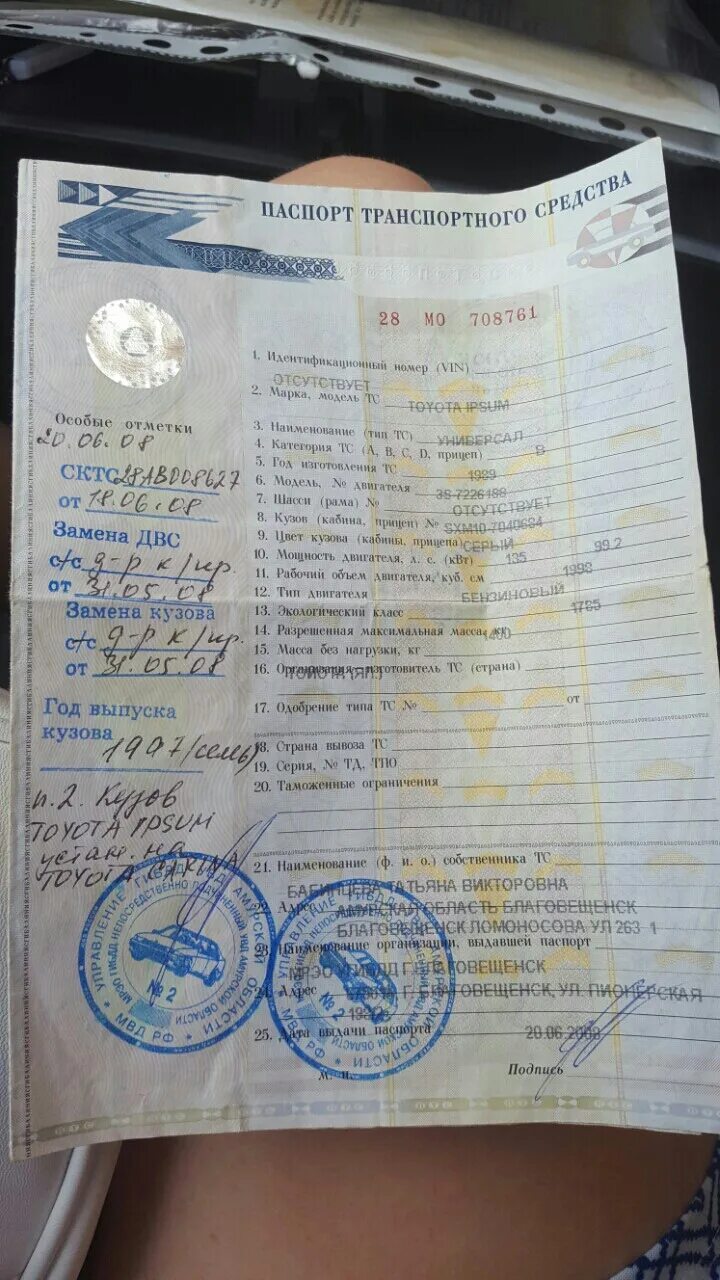 ПАСПОРТ ТРАНСПОРТНОГО СРЕДСТВА
28 МО 708761
1. Идентификационный номер (VIN)
ОТСУТСТВУЕТ
2. Марка, модель ТС TOYOTA IPSUM
3. Наименование (тип ТС) УНИВЕРСАЛ
4. Категория ТС (А, В, С, D, прицеп) В
5. Год изготовления ТС 1989
6. Модель, № двигателя 3S 7226188
7. Шасси (рама) № ОТСУТСТВУЕТ
8. Кузов (кабина, прицеп) № SXM10-7040684
9. Цвет кузова (кабины, прицепа) СЕРЫЙ
10. Мощность двигателя, л. с. (кВт) 135 99.2
11. Рабочий объем двигателя, куб. см 1998
12. Тип двигателя БЕНЗИНОВЫЙ
13. Экологический класс
14. Разрешенная максимальная масса, кг 1785
15. Масса без нагрузки, кг 1400
16. Организация-изготовитель ТС (страна)
ТОЙОТА (ЯП.)
17. Одобрение типа ТС № от
18. Страна вывоза ТС
19. Серия, № ТД, ТПО
20. Таможенные ограничения
21. Наименование (ф. и. о.) собственника ТС
БАБИНЦЕВА ТАТЬЯНА ВИКТОРОВНА
22. Адрес АМУРСКАЯ ОБЛАСТЬ БЛАГОВЕЩЕНСК
БЛАГОВЕЩЕНСК ЛОМОНОСОВА УЛ 263 1
23. Наименование организации, выдавшей паспорт
МРЭО УГИБДД Г.БЛАГОВЕЩЕНСК
24. Адрес Г. БЛАГОВЕЩЕНСК, УЛ. ПИОНЕРСКАЯ
25. Дата выдачи паспорта 20.06.2008
М. П. Подпись
Особые отметки
20.06.08
СКТС 28АВ008627
от 18.06.08
Замена ДВС
с/с д-р к/пр.
от 31.05.08
Замена кузова
с/с д-р к/пр.
от 31.05.08
Год выпуска
кузова 1997/семь)
п.2. Кузов
TOYOTA IPSUM
устан. на
TOYOTA CARINA
УПРАВЛЕНИЕ ГИБДД УВД АМУРСКОЙ ОБЛАСТИ
МВД РФ
№ 2
УПРАВЛЕНИЕ ГИБДД
ОБЛАСТИ
МВД РФ
№ 2